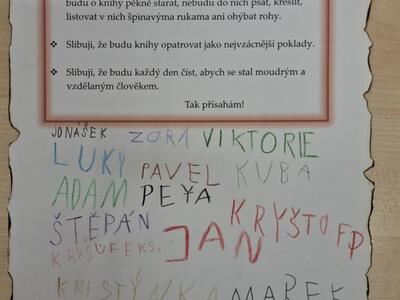 budu o knihy pěkně starat, nebudu do nich psát, kreslit,
listovat v nich špinavýma rukama ani ohýbat rohy.
❖ Slibuji, že budu knihy opatrovat jako nejvzácnější poklady.
❖ Slibuji, že budu každý den číst, abych se stal moudrým a
vzdělaným člověkem.
Tak přísahám!
JONÁŠEK ZORA VIKTORIE
LUKY PAVEL KUBA
ADAM PEŤA
ŠTĚPÁN JAN KRYŠTOF P
KRISTÝNKA MAREK